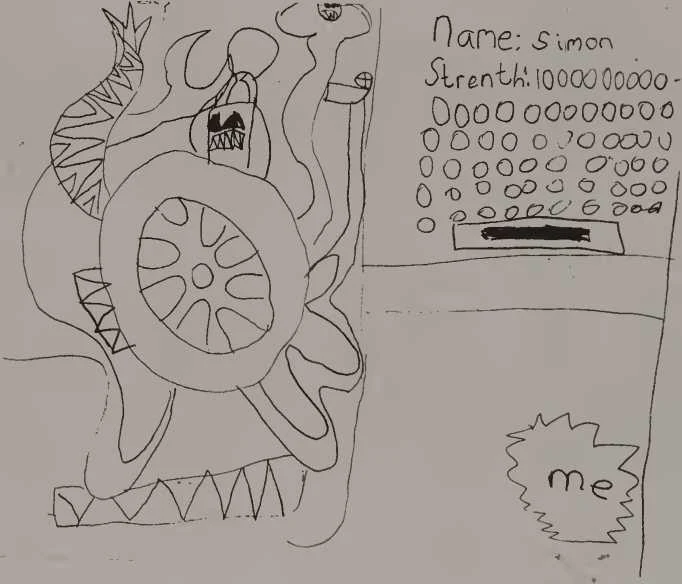 Name: Simon
Strenth: 1000000000-
0000 00000000
00000000000
0000000000
0000000000
0000000000
me